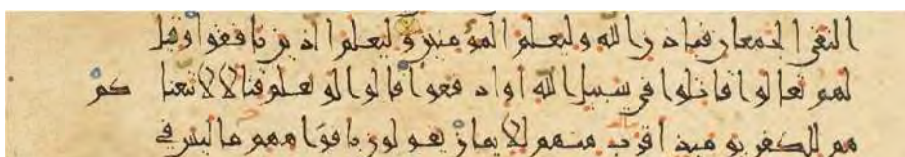 التقى الجمعان فباذن الله وليعلم المؤمنين وليعلم الذين نافقوا وقيل
لهم تعالوا قاتلوا في سبيل الله او ادفعوا قالوا لو نعلم قتالا لاتبعنا كم
هم للكفر يومئذ اقرب منهم للايمان يقولون بافوههم ما ليس في